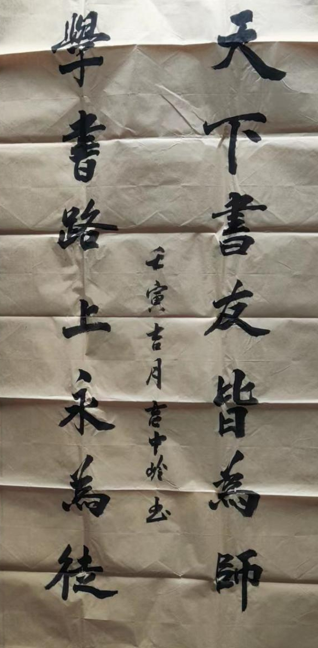 天下書友皆為師
學書路上永為徒
壬寅吉月吉中玲书